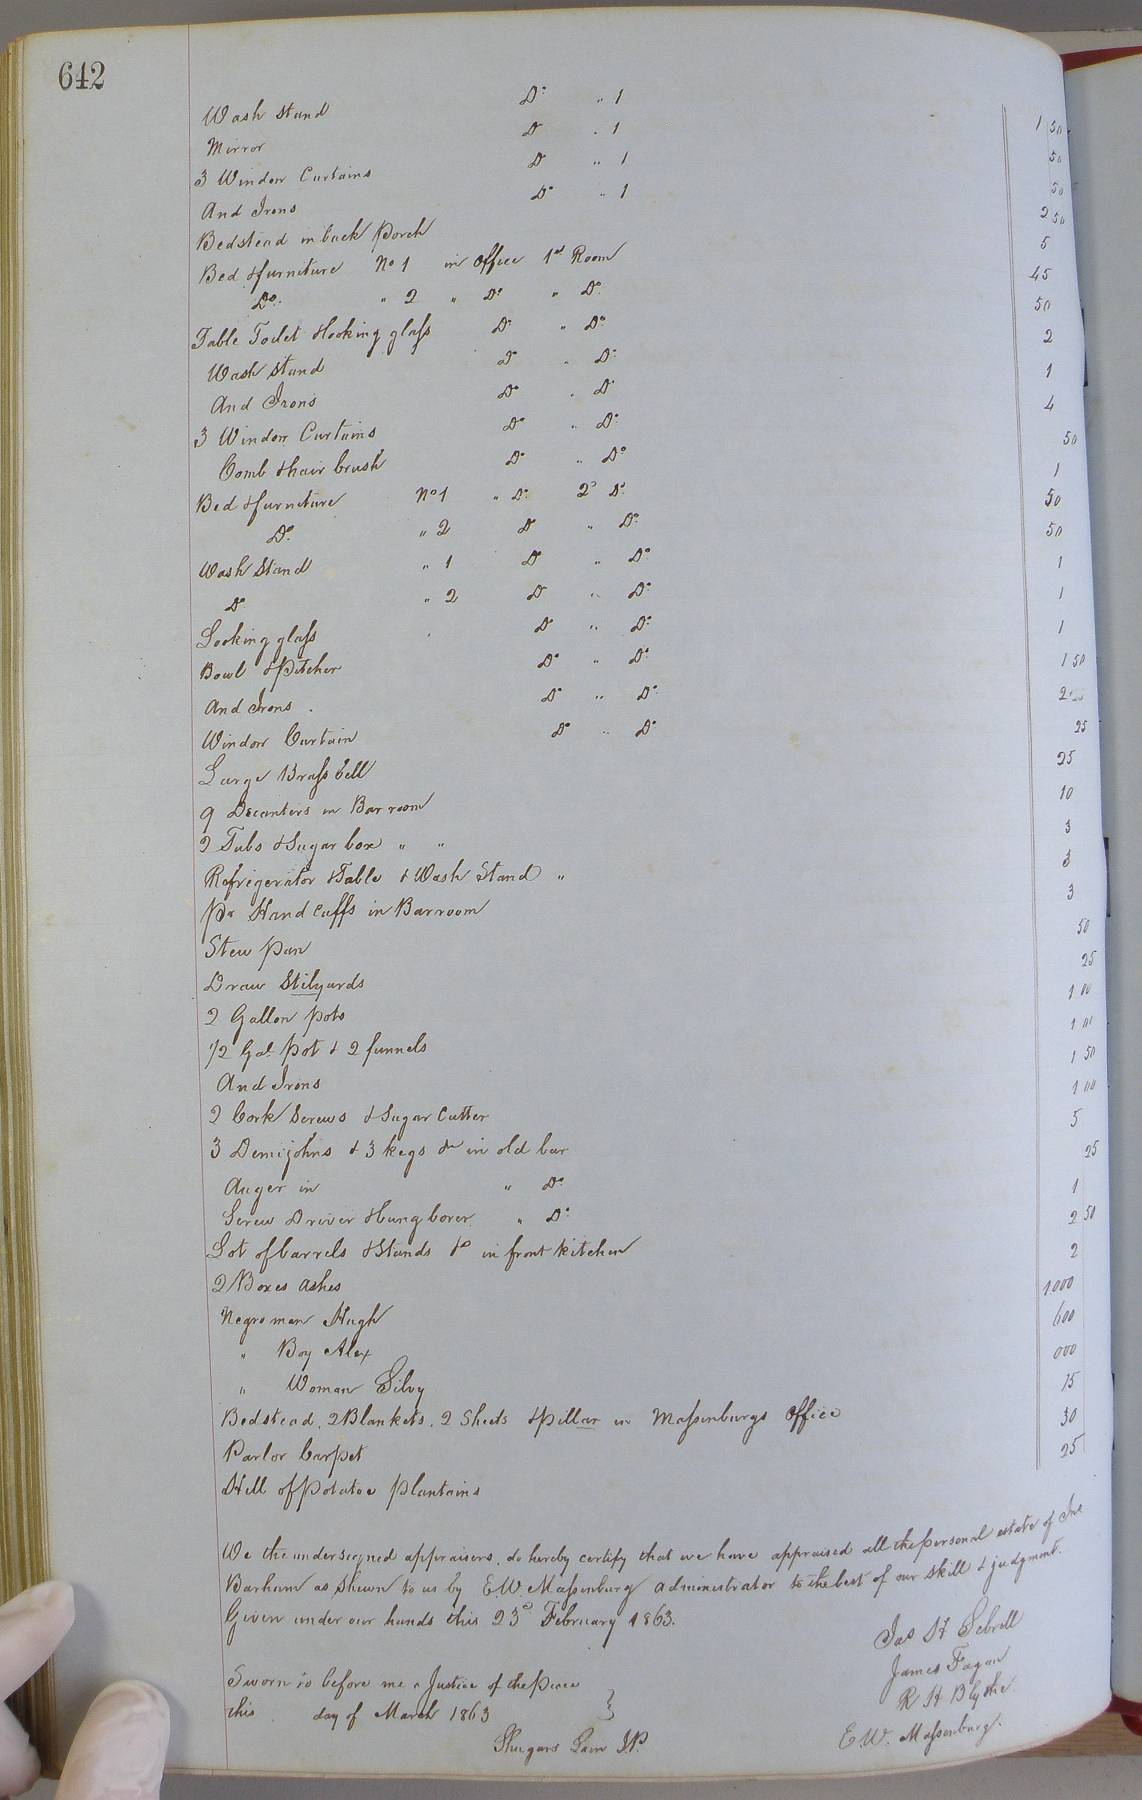 642
Wash Stand Do " 1 1 50
Mirror Do " 1 50
3 Window Curtains Do " 1 50
And Irons Do " 1 2 50
Bedstead in back Porch 5
Bed & furniture No 1 in Office 1st Room 45
Do. " 2 " Do " Do. 50
Table Toilet & looking glass Do " Do 2
Wash Stand Do " Do 1
And Irons Do " Do 4
3 Window Curtains Do " Do 50
Comb & hair brush Do " Do 1
Bed & furniture No 1 " Do 2d Do 50
Do. " 2 Do " Do 50
Wash Stand " 1 Do " Do 1
Do " 2 Do " Do 1
Looking glass Do " Do 1
Bowl & Pitcher Do " Do 1 50
And Irons Do " Do 2
Window Curtain Do " Do 25
Large Brass bell 25
9 Decanters in Bar room 10
2 Tubs & Sugar box " " 3
Refrigerator & Table & Wash Stand " 3
pr Hand Cuffs in Barroom 3
Stew pan 50
Draw Stilyards 25
2 Gallon pots 1 00
1/2 Gal pot & 2 funnels 1 00
And Irons 1 50
2 Cork Screws & Sugar Cutter 1 00
3 Demijohns & 3 kegs &c in old bar 5
Auger in " Do 25
Screw Driver & bung borer " Do 1
Lot of barrels & Stands &c in front kitchen 2 50
2 Boxes ashes 2
Negro man Hugh 1000
" Boy Alex 600
" Woman Silvy 000
Bedstead, 2 Blankets, 2 Sheets & pillar in Massenburgs Office 15
Parlor Carpet 30
Hill of potatoe plantains 25
We the undersigned appraisers, do hereby certify that we have appraised all the personal estate of Jno
Barham as shewn to us by E W Massenburg administrator to the best of our skill & judgment.
Given under our hands this 23d February 1863.
Jas H Sebrell
James Fagan
R H Blythe
E. W. Massenburg.
Sworn to before me a Justice of the Peace
this day of March 1863
Lam J.P.